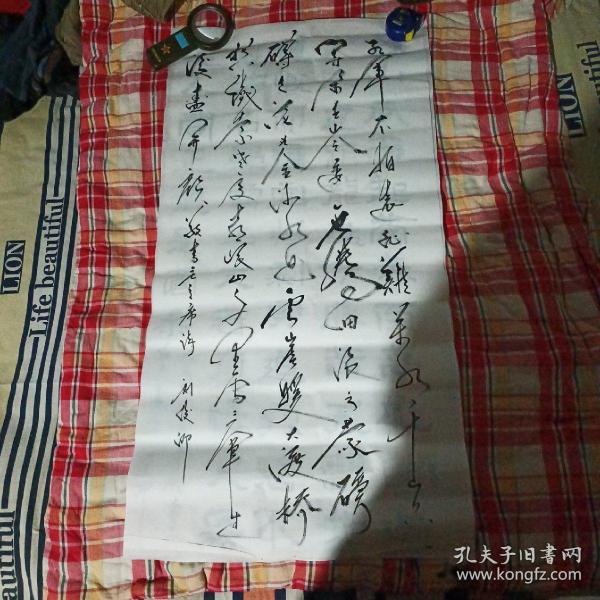 红军不怕远征难万水千山只
等闲五岭逶迤腾细浪乌蒙磅
礴走泥丸金沙水拍云崖暖大渡桥
横铁索寒更喜岷山千里雪三军过
後盡開颜 敬书毛主席诗
LION
Life beautiful
LION
beautiful
孔夫子旧书网
www.kongfz.com